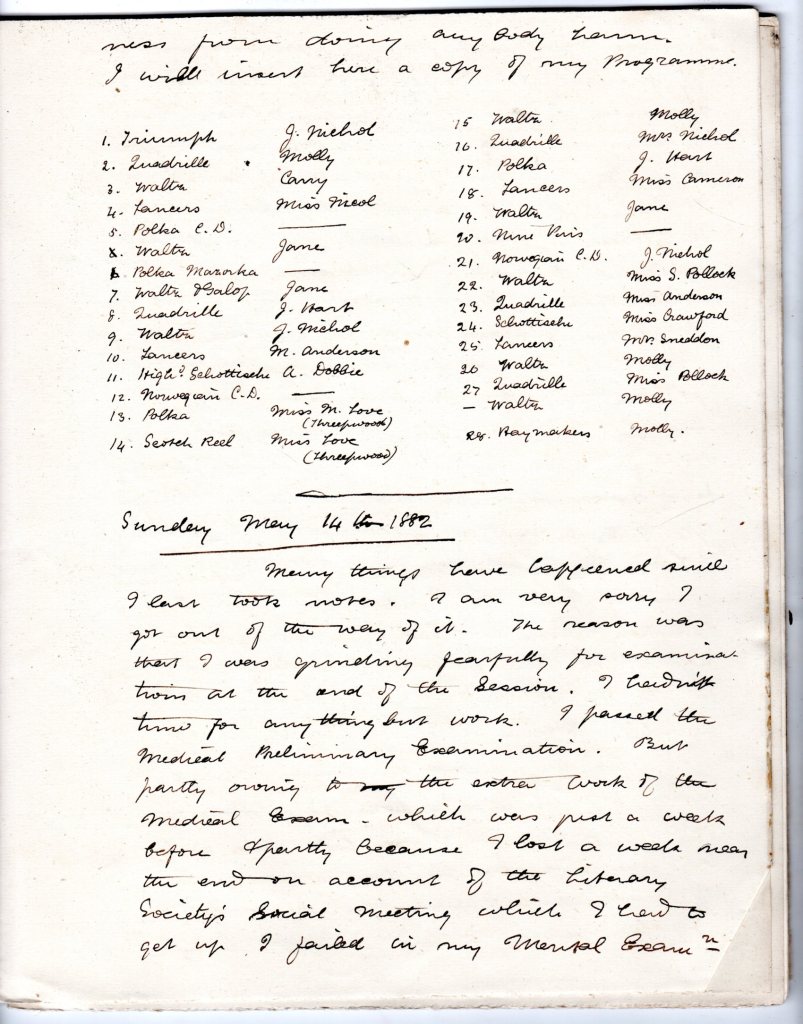 ness from doing any body harm.
I will insert here a copy of my Programme.
1. Triumph J. Nichol
2. Quadrille Molly
3. Waltz Carry
4. Lancers Miss Nicol
5. Polka C.D. ——
Waltz Jane
6. Polka Mazorka ——
7. Waltz & Galop Jane
8. Quadrille J. Hart
9. Waltz J. Nichol
10. Lancers M. Anderson
11. High.d Schottische A. Dobbie
12. Norwegian C.D. ——
13. Polka Miss M. Love
(Threepwood)
14. Scotch Reel Miss Love
(Threepwood)
15 Waltz Molly
16. Quadrille Mrs. Nichol
17. Polka J. Hart
18. Lancers Miss Cameron
19. Waltz Jane
20. Nine Pins ——
21. Norwegian C.D. J. Nichol
22. Waltz Miss S. Pollock
23. Quadrille Miss Anderson
24. Schottische Miss Crawford
25. Lancers Mrs. Sneddon
26 Waltz Molly
27 Quadrille Miss Pollock
— Waltz Molly
28. Haymakers Molly.
Sunday May 14th 1882
Many things have happened since
I last took notes. I am very sorry I
got out of the way of it. The reason was
that I was grinding fearfully for examina-
tions at the end of the Session. I hadn't
time for anything but work. I passed the
Medical Preliminary Examination. But
partly owing to the extra work of the
Medical Exam. which was just a week
before & partly because I lost a week near
the end on account of the Literary
Society's Social Meeting which I had to
get up I failed in my Mental Exam.n